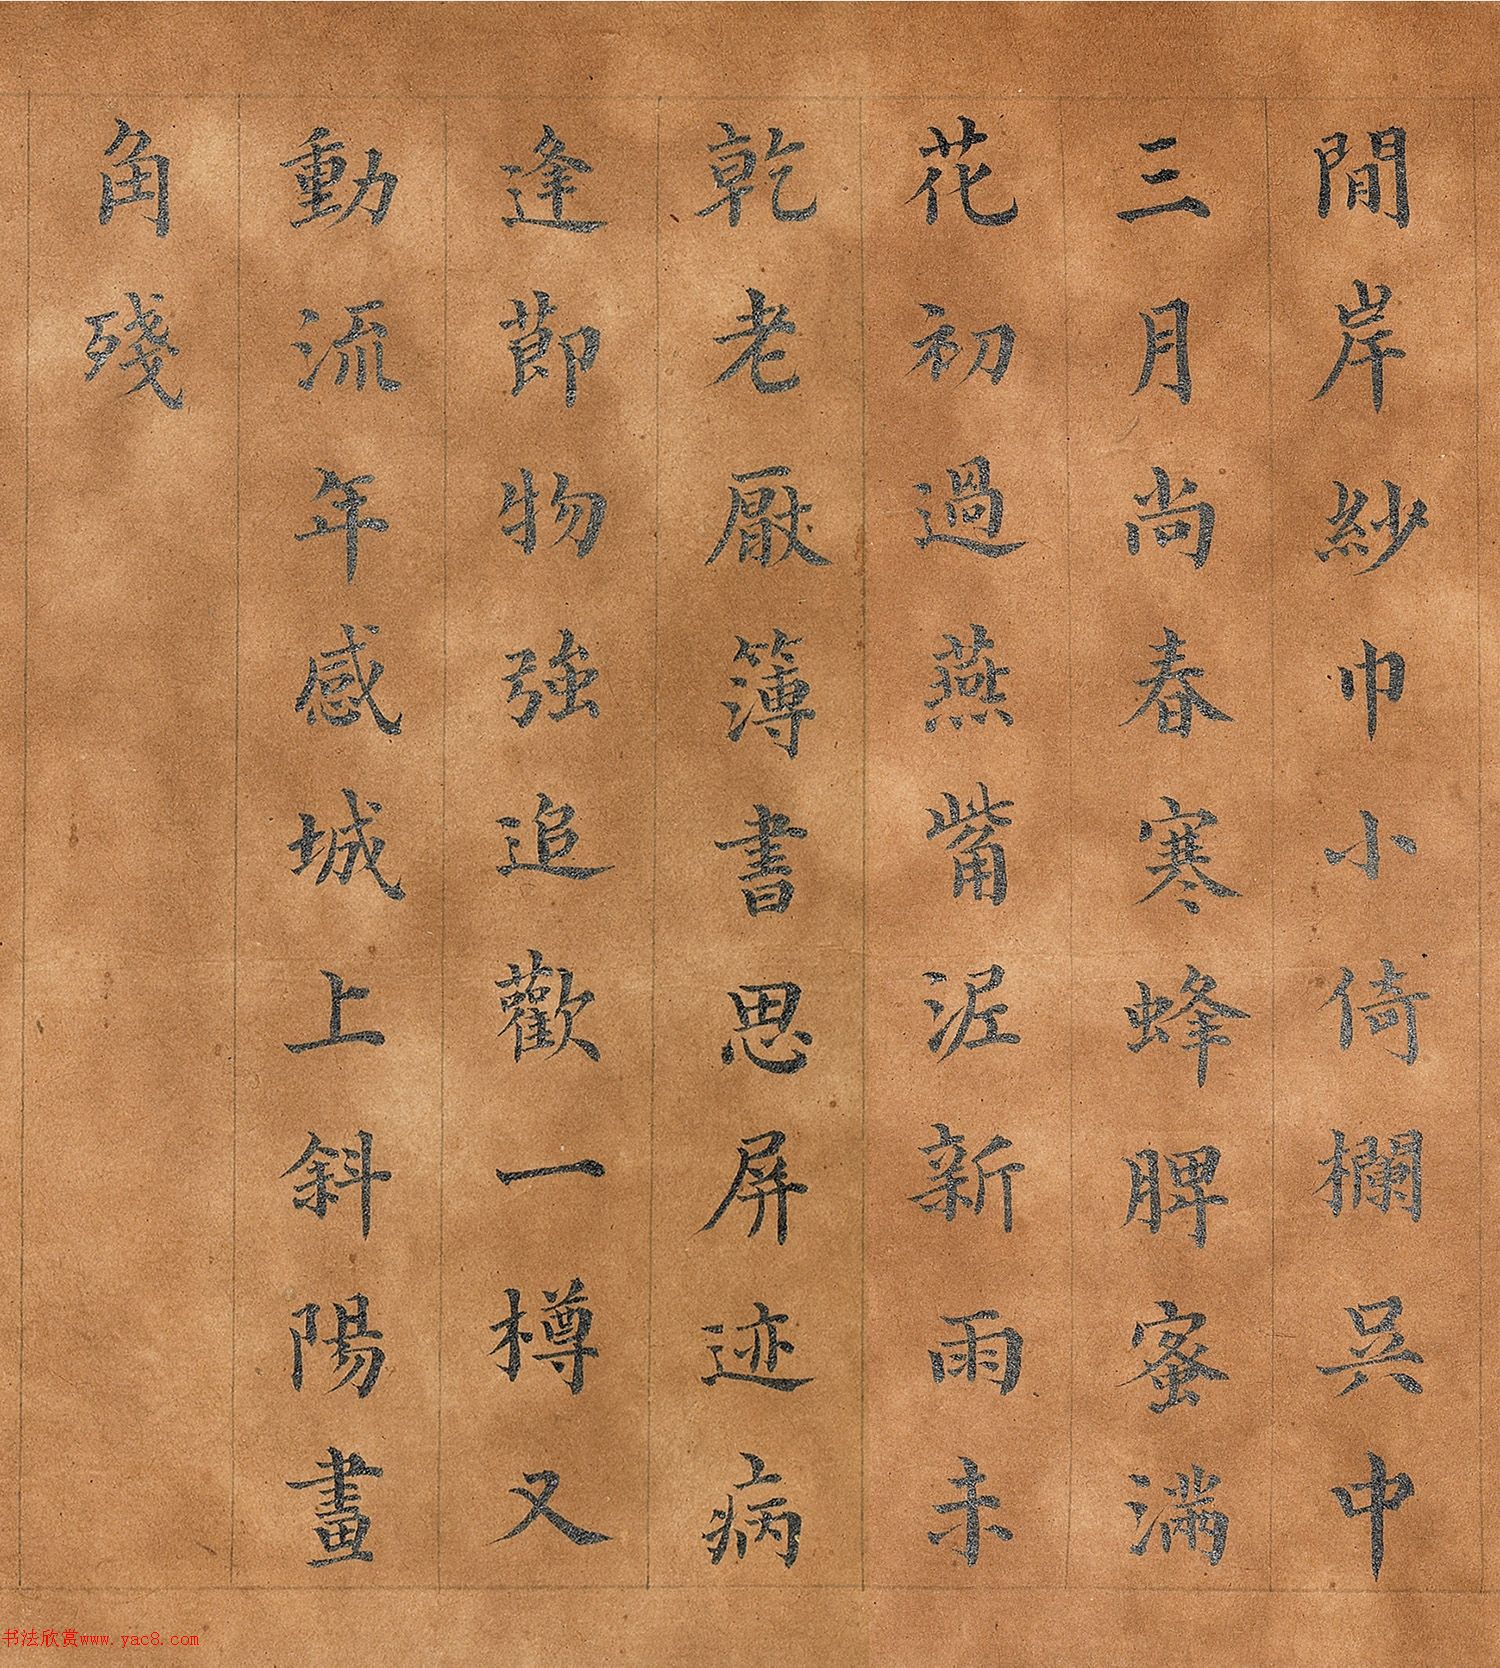 間岸紗巾小倚欄吳中
三月尚春寒蜂脾蜜滿
花初過燕觜泥新雨未
乾老厭簿書思屏迹病
逢節物強追歡一樽又
動流年感城上斜陽畫
角殘
书法欣赏www.yac8.com